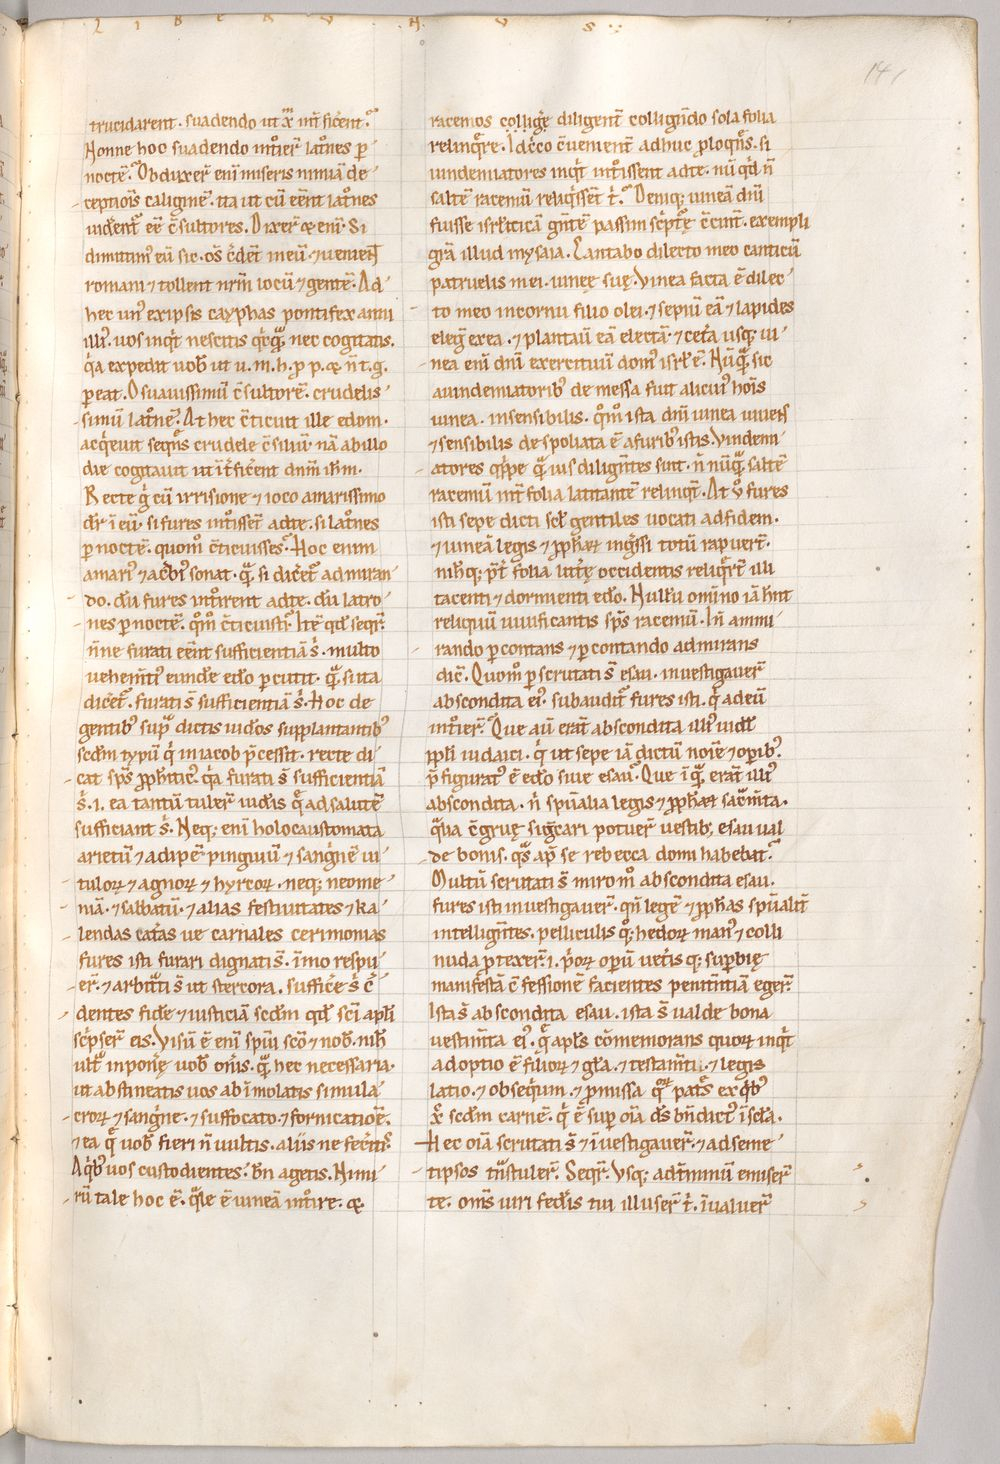 LIBER VNVS
141
trucidarent. suadendo ut xp̄m int̄ficerent.
Nonne hoc suadendo int̄ier̄ lat͛ones p̄
noctē. Obduxer̄ eni miseris nimiā de
ceptiois caliginē. ita ut cū eēnt lat͛ones
uid͛ent̄ eē c̄sultores. Dixer̄ & eni. Si
dimittim᷒ eū sic. os̄ c͛dēt in eū. ⁊ uenient
romani ⁊ tollent nr̄m locū ⁊ gentē. Ad
hec un᷒ ex ipsis cayphas pontifex anni
illi᷒. uos inq͛t nescitis q͛cq̄. nec cogitatis.
q͛a expedit uob̄ ut u. m. h. p p. & n̄ t. g.
peat. O suauissimū c̄sultorē. crudelis
simū lat͛onē. At hec c̄ticuit ille edom.
acq͛euit seq̄ns crudele c̄siliū. nā ab illo
die cogitauit ut īt̄ficēnt dnm ihm.
Recte g͛ cū irrisione ⁊ ioco amarissimo
dr̄ ī eū. si fures int͛oissēt ad te. si lat͛ones
p noctē. quom͛o c̄ticuisses. Hoc enim
amari᷒ ⁊ acb᷒i sonat. q̄ si dicēt᷒ ad miran
do. dū fures int͛oirent ad te. dū latro
nes p noctē. q͛om͛o c̄ticuisti. Itē qd seqr̄.
n̄ne furati eēnt sufficientiā s͛. multo
uehem̄ti᷒ eunde edō p cutit. q̄ si ita
dicēt᷒. furati s̄ sufficientiā s͛. Hoc de
gentib᷒ sup̄ dictis iudeos supplantantib᷒
scdm typū q͛ in iacob p̄cessit. recte di
cat sp̄s pphetic᷒. q͛a furati s̄ sufficientiā
s͛. i. ea tantū tuler̄ iudeis q̄ ad salutē
sufficiant s͛. Neq; eni holocaustomata
arietū ⁊ adipē pinguiū ⁊ sangnē ui
tuloꝝ ⁊ agnoꝝ ⁊ hyrcoꝝ. neq; neome
niā. ⁊ sabbatū. ⁊ alias festiuitates ⁊ ka
lendas cet͛as ue carnales cerimonias
fures isti furari dignati s̄. īmo respu
er̄. ⁊ arbit̄ti s̄ ut stercora. sufficē s͛ c͛
dentes fidē ⁊ iusticiā scdm qd sc̄i apl̄i
sc͛pser̄ eis. Visū ē eni spui sc̄o ⁊ nob̄. nih̄
ult̄ inponē uob̄ on͛is. q̄ hec necessaria.
ut abstineatis uos ab īmolatis simula
croꝝ ⁊ sangne. ⁊ suffocato. ⁊ fornicatioē.
⁊ ea q̄ uob̄ fieri n̄ uultis. aliis ne fec͛itis.
A q͛b᷒ uos custodientes. bn̄ agetis. Nimi
rū tale hoc ē. q̄le ē uineā int͛oire. &
racemos colligē diligent̄ colligendo sola folia
relinq͛re. Idc͛co c̄uenient̄ adhuc ploq̄ns. si
uindemiatores inq͛t int͛oissent ad te. nū q͛d n̄
saltē racemū reliq͛ssēt t͛. Deniq; uineā dn̄i
fuisse isrl̄iticā gn̄tē passim sc͛ptę c̄cinūt. exempli
gr̄a illud in ysaia. Cantabo dilecto meo canticū
patruelis mei. uineę suę. Vinea facta ē dilec
to meo in cornu filio olei. ⁊ sepiū eā ⁊ lapides
eleḡ ex ea. ⁊ plantauī eā electā. ⁊ cet͛a usq; ui
nea eni dn̄i exercituū dom᷒ isrl̄ ē. Nūq̄ sic
a uindemiatorib᷒ de messa fuit alicui᷒ hoīs
uinea. insensibilis. q͛om͛o ista dn̄i uinea uiuens
⁊ sensibilis despoliata ē a furib᷒ istis. Vindemi
atores q͛ppe q̄uis diligen̄tes sint. n̄ nūq̄ saltē
racemū int̄ folia latitantē relinqt̄. At u͛o fures
isti sepe dicti scl̄ gentiles uocati ad fidem.
⁊ uineā legis ⁊ pphetaꝝ ing͛ssi totū rapuer̄t.
nih̄q; p̄t̄ folia litt̄ę occidentis reliq͛r̄t illi
iacenti ⁊ dormienti edō. Nullū omino iā hn̄t
reliquū uiuificantis sp̄s racemū. In̄ ammi
rando p contans ⁊ p contando admirans
dic̄. Quom͛o p scrutati s̄ esau. inuestigauer̄
abscondita ei᷒. subauditr̄ fures isti. q͛ ad eū
int͛oier̄. Que aū erant abscondita illi᷒ uidl̄
ppl̄i iudaici. q͛ ut sepe iā dictū noīe ⁊ opib᷒
p̄figurat᷒ ē edō siue esau. Que ī q̄ erant illi᷒
abscondita. n͛ spūalia legis ⁊ pphetaꝝ sac̄m̄ta.
q̄lia c̄gruę siḡcari potuer̄ uestib; esau ual
de bonis. q̄s ap̄ se rebecca domi habebat.
Multū scrutati s̄ miro m͛o abscondita esau.
fures isti inuestigauer̄. qn̄ legē ⁊ pphās spūalit̄
intelligentes. pelliculis q͛; hedoꝝ man᷒ ⁊ colli
nuda p texer̄. i. p͛oꝝ opū uet͛is q; supbię
manifestā c̄fessionē facientes penitn̄tiā eger̄.
Ista s̄ abscondita esau. ista s̄ ualde bona
uestim̄ta ei᷒. q̄ apl̄s cōmemorans quoꝝ inq͛t
adoptio ē filioꝝ ⁊ gl̄a. ⁊ testam̄ti. ⁊ legis
latio. ⁊ obseqium. ⁊ pmissa q͛oꝝ pat͛s ex q͛b᷒
xp̄c scdm carnē. q͛ ē sup oīa ds̄ bn̄dict᷒ ī scl̄a.
Hec oīa scrutati s̄ ⁊ īuestigauer̄. ⁊ ad seme
tipsos tn̄stuler̄. Seqr̄. Vsq; ad t̄minū emiser̄
te. om̄s uiri fed͛is tui illuser̄ t͛. īualuer̄